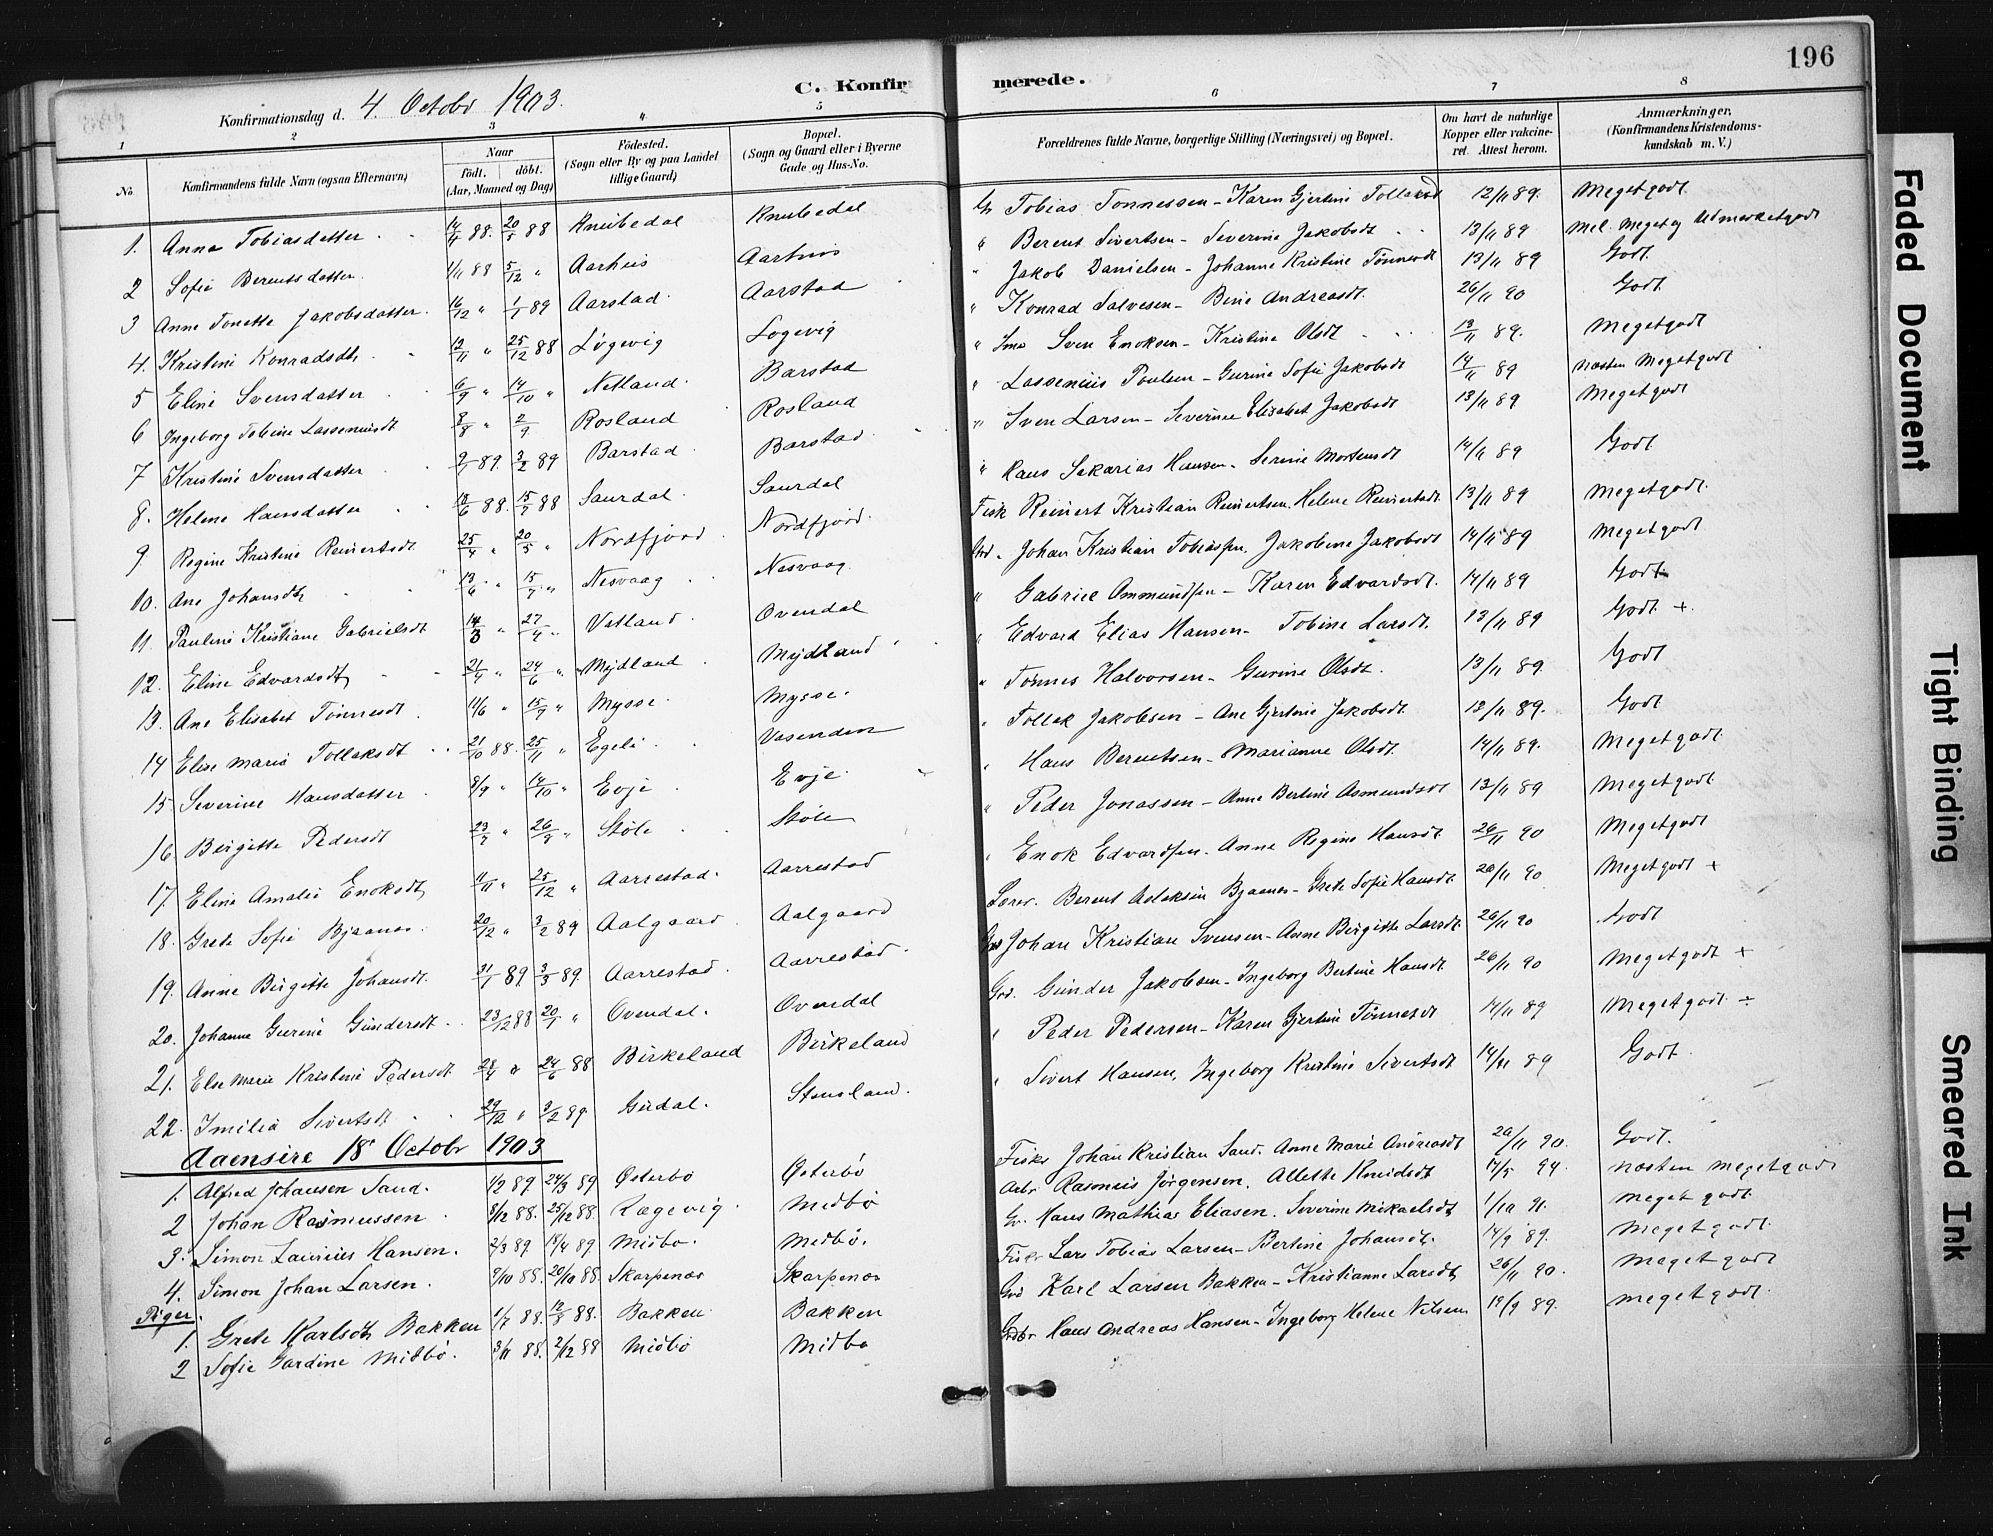 196
C. Konfirmerede.
Konfirmationsdag d. 4. Octobr 1903.
1 2 3 4 5 6 7 8
No. Konfirmandens fulde Navn (ogsaa Efternavn) Naar født. døbt. (Aar, Maaned og Dag) Fødested. (Sogn eller By og paa Landet tillige Gaard) Bopæl. (Sogn og Gaard eller i Byerne Gade og Hus-No. Forældrenes fulde Navne, borgerlige Stilling (Næringsvei) og Bopæl. Om havt de naturlige Kopper eller vakcineret. Attest herom. Anmærkninger, (Konfirmandens Kristendomskundskab m. V.)
1. Anna Tobiasdatter 14/4 88. 20/5 88 Knubedal Knubedal Tobias Tønnessen - Karen Gjertine Tollaksd 12/11 89. Megetgodt
2 Sofie Berentsdatter 1/11 88 5/12 " Aarhus Aarhus " Berent Sivertsen - Severine Jakobsdt 13/11 89 Mel. Meget og Udmerketgodt
3 Anne Tonette Jakobsdatter 16/12 " 1/1 89 Aarstad Aarstad " Jakob Danielsen - Johanne Kristine Tønnesdt 13/11 89 Godt
4. Kristine Konradsdtr 12/11 " 25/12 88 Løgevig Logevig " Konrad Salvesen - Bine Andreasdt. 26/11 90 Godt
5 Eline Svensdatter 6/9 " 14/10 " Netland Barstad " Sven Enoksen - Kristine Olsdt 13/11 89. Megetgodt
6 Ingeborg Tobine Lasseniusdt 8/8 " 2/9 Rosland Rosland " Lassenius Poulsen - Gurine Sofie Jakobsdt 14/11 89 næsten Megetgodt
7 Kristine Svensdatter 9/1 89. 3/2 89 Barstad Barstad " Sven Larsen - Severine Elisabet Jakobsdt 13/11 89 Megetgodt
8. Helene Hansdatter 13/6 88. 15/7 88 Saurdal Saurdal " Hans Sakarias Hansen - Serine Mortensdt 14/11 89 Godt
9 Regine Kristine Reinertsdt 25/4 " 20/5 " Nordfjord Nordfjord Fisk Reinert Kristian Reinertsen. Helene Reinertsdt. 13/11 89 Megetgodt.
10. Ane Johansdtr 13/6 " 15/7 " Nesvaag Nesvaag Grd. Johan Kristian Tobiassen, Jakobine Jakobsdt 14/11 89 Megetgodt
11. Pauline Kristiane Gabrielsdt 14/3 " 27/4 " Vatland Ovendal " Gabriel Ommundsen - Karen Edvardsdt. 14/11 89 Godt
12. Eline Edvardsdt 21/4 " 24/6 " Mydland Mydland " Edvard Elias Hansen - Tobine Larsdt. 13/11 89 Godt +
13. Ane Elisabet Tønnesdt 11/6 " 15/7 " Mysse Mysse " Tønnes Halvorsen - Gurine Olsdt. 13/11 89. Godt
14 Elise Marie Tollaksdt 21/10 88. 25/11 " Egeli Vasenden " Tollak Jakobsen - Ane Gjertine Jakobsdt. 12/11 89. Godt
15. Severine Hansdatter 8/9 " 14/10 " Evje Evje " Hans Berentsen - Marianne Olsdt. 14/11 89. Megetgodt
16. Birgitte Pedersdt 23/7 " 26/8 " Støle Støle " Peder Jonassen - Anne Bertine Asmundsdt 13/11 89 Megetgodt
17. Eline Amalie Enoksdt 11/11 " 25/12 " Aarrestad Aarrestad " Enok Edvardsen - Anne Regine Hansdt. 26/11 90 Megetgodt
18. Grete Sofie Bjaanes 20/12 " 3/2 89 Aalgaard Aalgaard Lærer. Berent Aslaksen Bjaanes - Grete Sofie Hansdt 20/11 90 Megetgodt +
19. Anne Birgitte Johansdt. 31/1 89 3/3 89. Aarrestad Aarrestad Grd Johan Kristian Svensen - Anne Birgitte Larsdt 26/11 90 Godt
20. Johanne Gurine Gundersdt. 23/12 88 20/1 " Ovendal Ovendal Grd. Gunder Jakobsen - Ingeborg Bertine Hansdt. 26/11 90 Megetgodt +
21. Else Marie Kristine Pedersdt 28/4 " 24/6 88 Birkeland Birkeland " Peder Pedersen - Karen Gjertine Tønnesdt 14/11 89 Megetgodt ÷
22. Imilie Sivertsdt 29/12 " 3/2 89. Gudal. Stensland. " Sivert Hansen, Ingeborg Kristine Sivertsdt 14/11 89 Godt.
Aaensire 18 Octobr 1903
1. Alfred Johansen Sand. 1/2 89. 24/3 89 Østerbø Østerbø Fisker Johan Kristian Sand. Anne Marie Andreasdt 20/11 90. Godt.
2 Johan Rasmussen 8/12 88. 25/12 88. Rægevig Midbø Arbr Rasmus Jørgensen. Allette Knudsdt 17/5 94. næsten megetgodt
3. Simon Laurius Hansen. 2/3 89 18/4 89 Midbø Midbø. Gr. Hans Mathias Eliasen. Severine Mikaelsdt 1/10 91. meget godt
4. Simon Johan Larsen 9/10 88. 20/10 88. Skarpenæs Skarpenæs Fisker Lars Tobias Larsen - Bertine Johansdt. 14/9 89. Megetgodt
Piger
1. Grete Karlsdtr Bakken 1/7 88. 12/8 88. Bakken Bakken Grd Karl Larsen Bakken - Kristianne Larsdt 26/11 90. Megetgodt
2 Sofie Gardine Midbø. 3/11 88. 2/12 88 Midbø Midbo Grdbr Hans Andreas Hansen - Ingeborg Helene Nilsen 19/9 89. Megetgodt.
Faded Document
Tight Binding
Smeared Ink